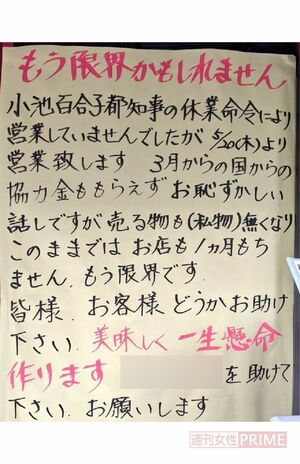 もう限界かもしれません
小池百合子都知事の休業命令により
営業していませんでしたが 5/20(木)より
営業致します 3月からの国からの
協力金ももらえず お恥ずかしい
話しですが 売る物も(私物)無くなり
このままでは お店も1ヵ月もち
ません. もう限界です.
皆様. お客様 どうかお助け
下さい. 美味しく 一生懸命
作ります を助けて
下さい. お願いします
週刊女性PRIME